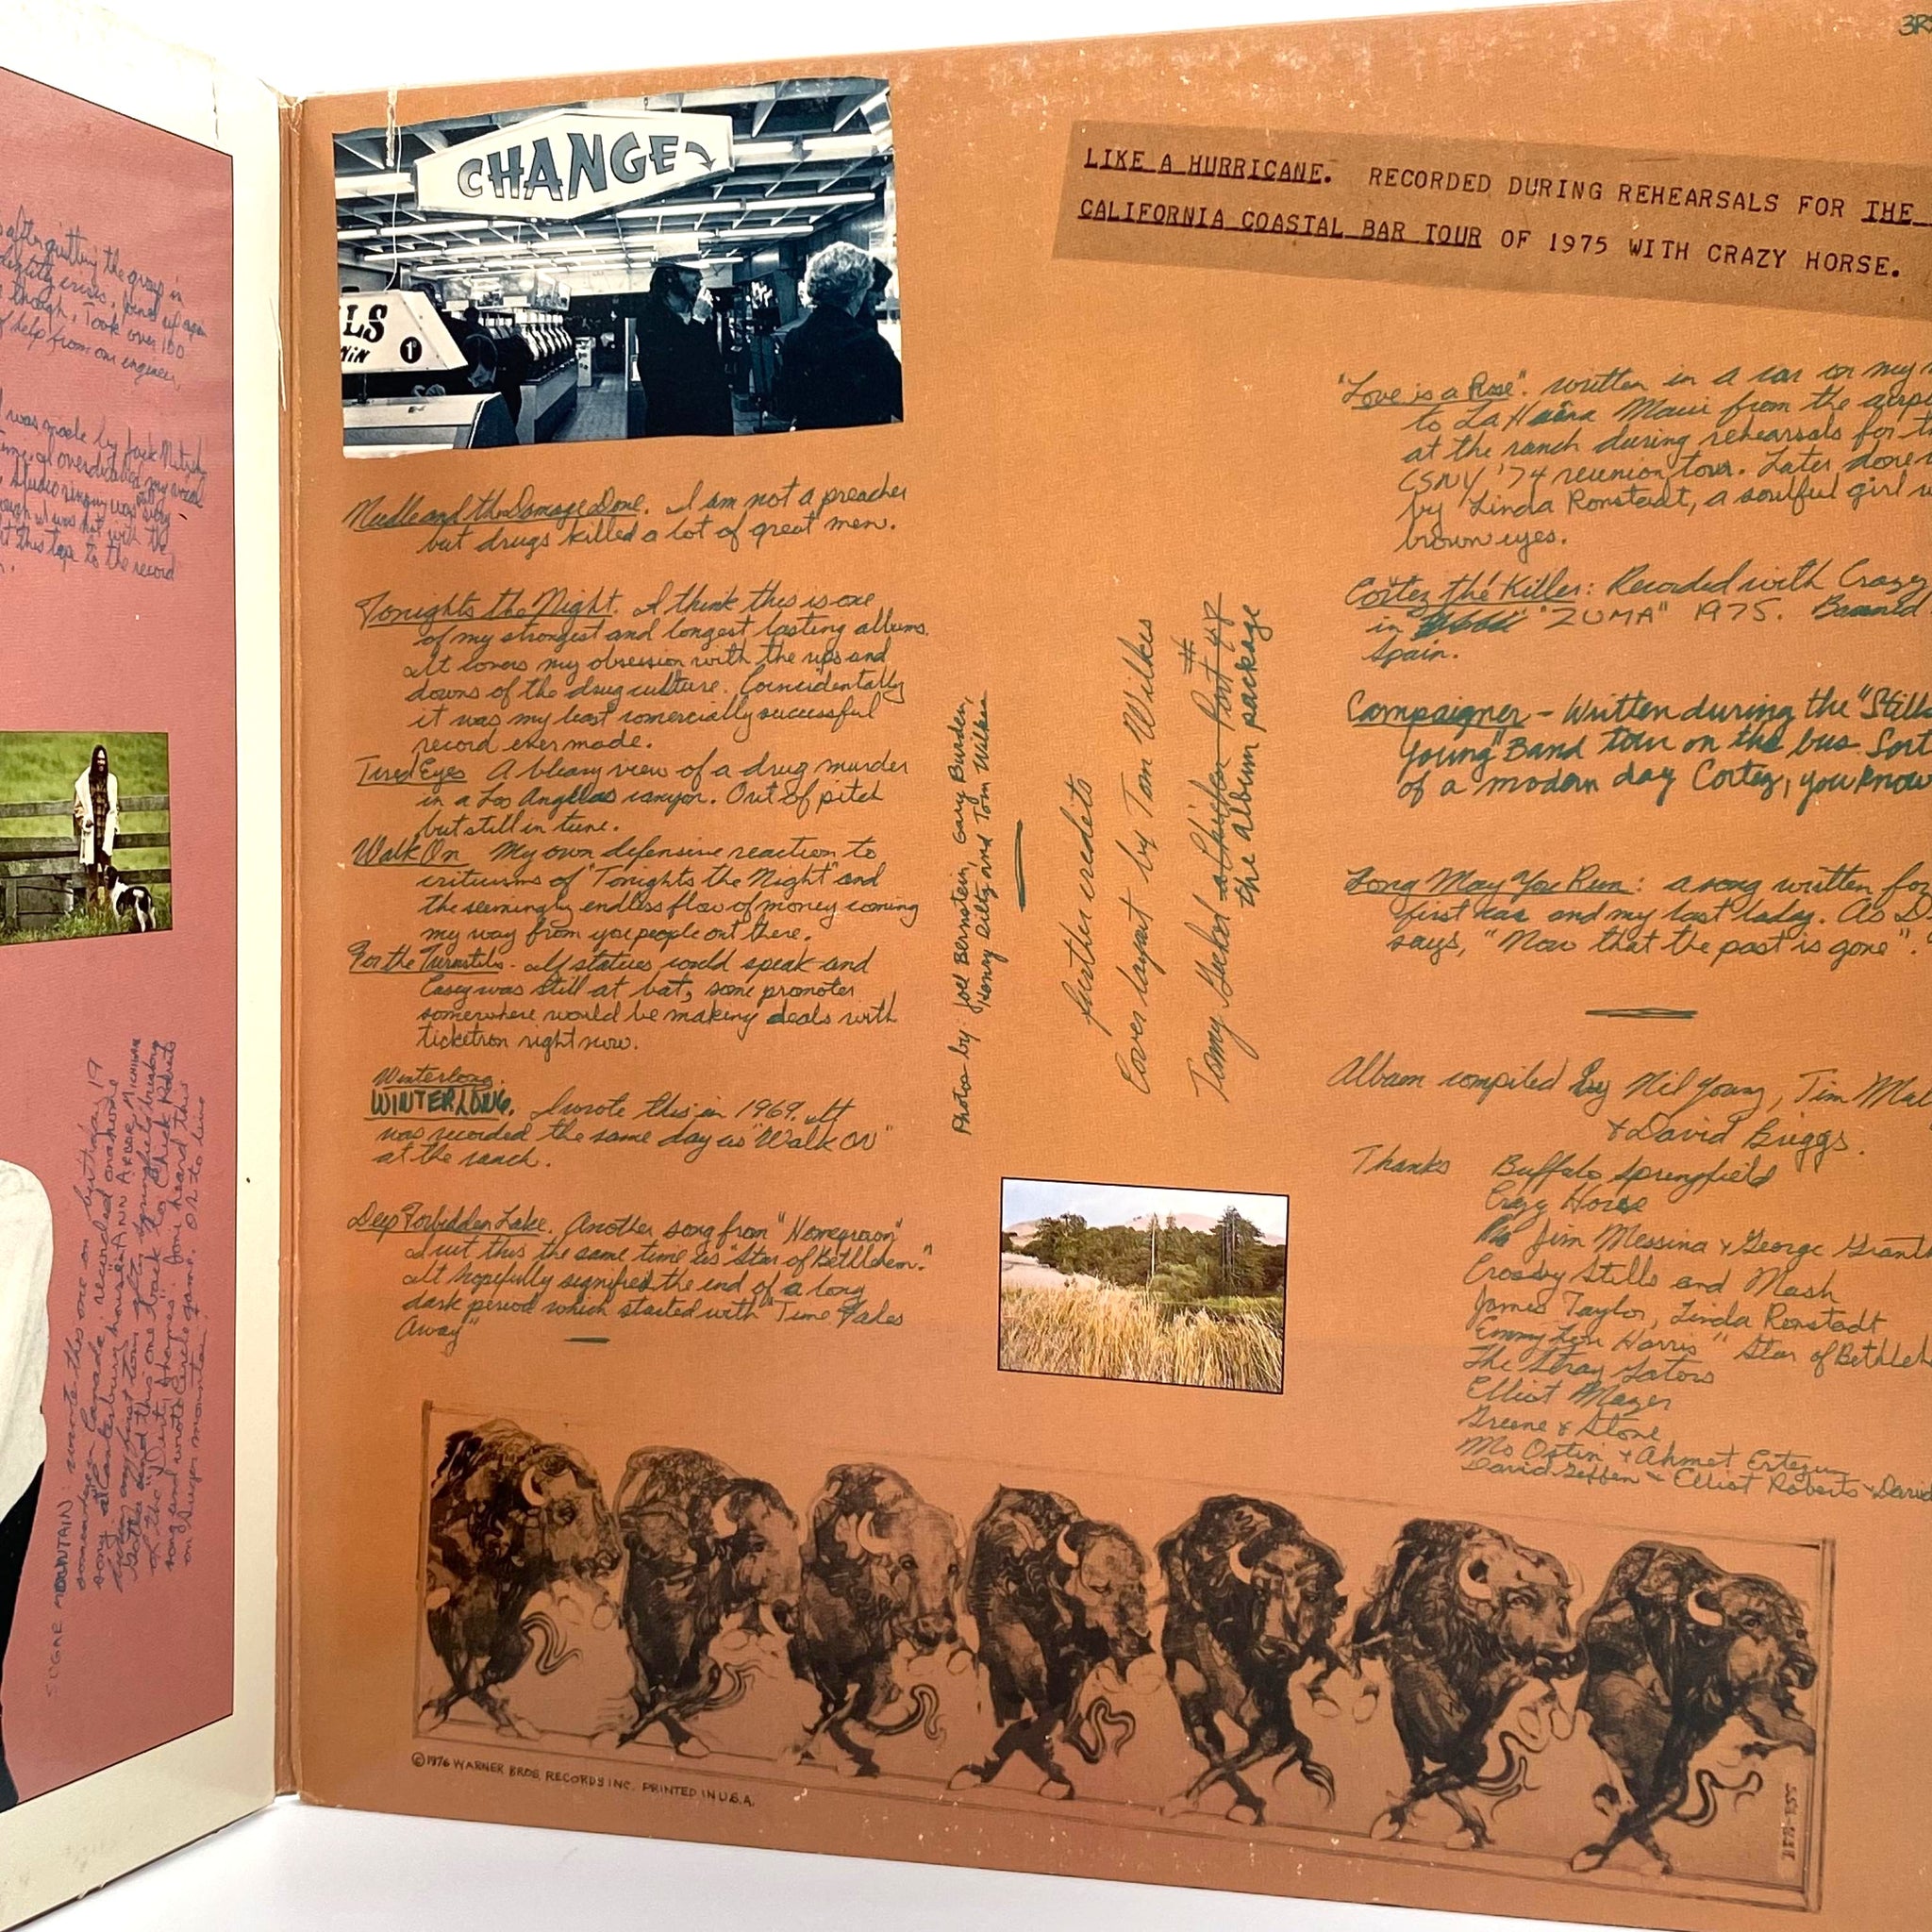 after quitting the group in
identity crisis, joined up again
though. Took over 100
of help from our engineer,
was made by Jack Nitzsche
time, I overdubbed my vocal
studio singing was very
with the
this tape to the record
SUGAR MOUNTAIN: wrote this one on birthday 19
somewhere in Canada. recorded on a
song at Canterbury house in ANN ARBOR MICHIGAN
CHANGE
LLS
WIN
1¢
Needle and the Damage Done. I am not a preacher
but drugs killed a lot of great men.
Tonights the Night. I think this is one
of my strongest and longest lasting albums.
It covers my obsession with the ups and
downs of the drug culture. Coincidentally
it was my least comercially successful
record ever made.
Tired Eyes A bleary view of a drug murder
in a Los Angeles canyon. Out of pitch
but still in tune.
Walk On My own defensive reaction to
criticisms of "Tonights the Night" and
the seemingly endless flow of money coming
my way from you people out there.
For the Turnstiles. If statues could speak and
Casey was still at bat, some promoter
somewhere would be making deals with
ticketron right now.
Winterlong.
WINTERLONG. I wrote this in 1969. It
was recorded the same day as "Walk ON"
at the ranch.
Deep Forbidden Lake. Another song from "Homegrown"
I cut this the same time as "Star of Bethlehem."
It hopefully signified the end of a long
dark period which started with "Time Fades
Away"
Photos by: Joel Bernstein, Gary Burden,
Henry Diltz and Tom Wilkes
further credits
Cover layout by Tom Wilkes
Tomy
the album package
3R
LIKE A HURRICANE. RECORDED DURING REHEARSALS FOR THE
CALIFORNIA COASTAL BAR TOUR OF 1975 WITH CRAZY HORSE.
"Love is a Rose". written in a car on my
to LaHaina Maui from the airp
at the ranch during rehearsals for th
CSNY '74 reunion tour. Later done
by Linda Ronstadt, a soulful girl w
brown eyes.
Cortez the Killer: Recorded with Crazy
in "ZUMA" 1975. Banned
Spain.
Campaigner - Written during the "Stills
Young" Band tour on the bus. Sort
of a modern day Cortez, you know
Long May You Run: a song written for
first car and my last lady. As D
says, "Now that the past is gone".
Album compiled by Neil Young, Tim Mul
& David Briggs.
Thanks Buffalo Springfield
Crazy Horse
Jim Messina & George Grant
Crosby Stills and Nash
James Taylor, Linda Ronstadt
Emmy Lou Harris "Star of Bethleh
The Stray Gators
Elliot Mazer
Greene & Stone
Mo Ostin & Ahmet Ertegun
David Geffen & Elliot Roberts & David
©1976 WARNER BROS. RECORDS INC. PRINTED IN U.S.A.